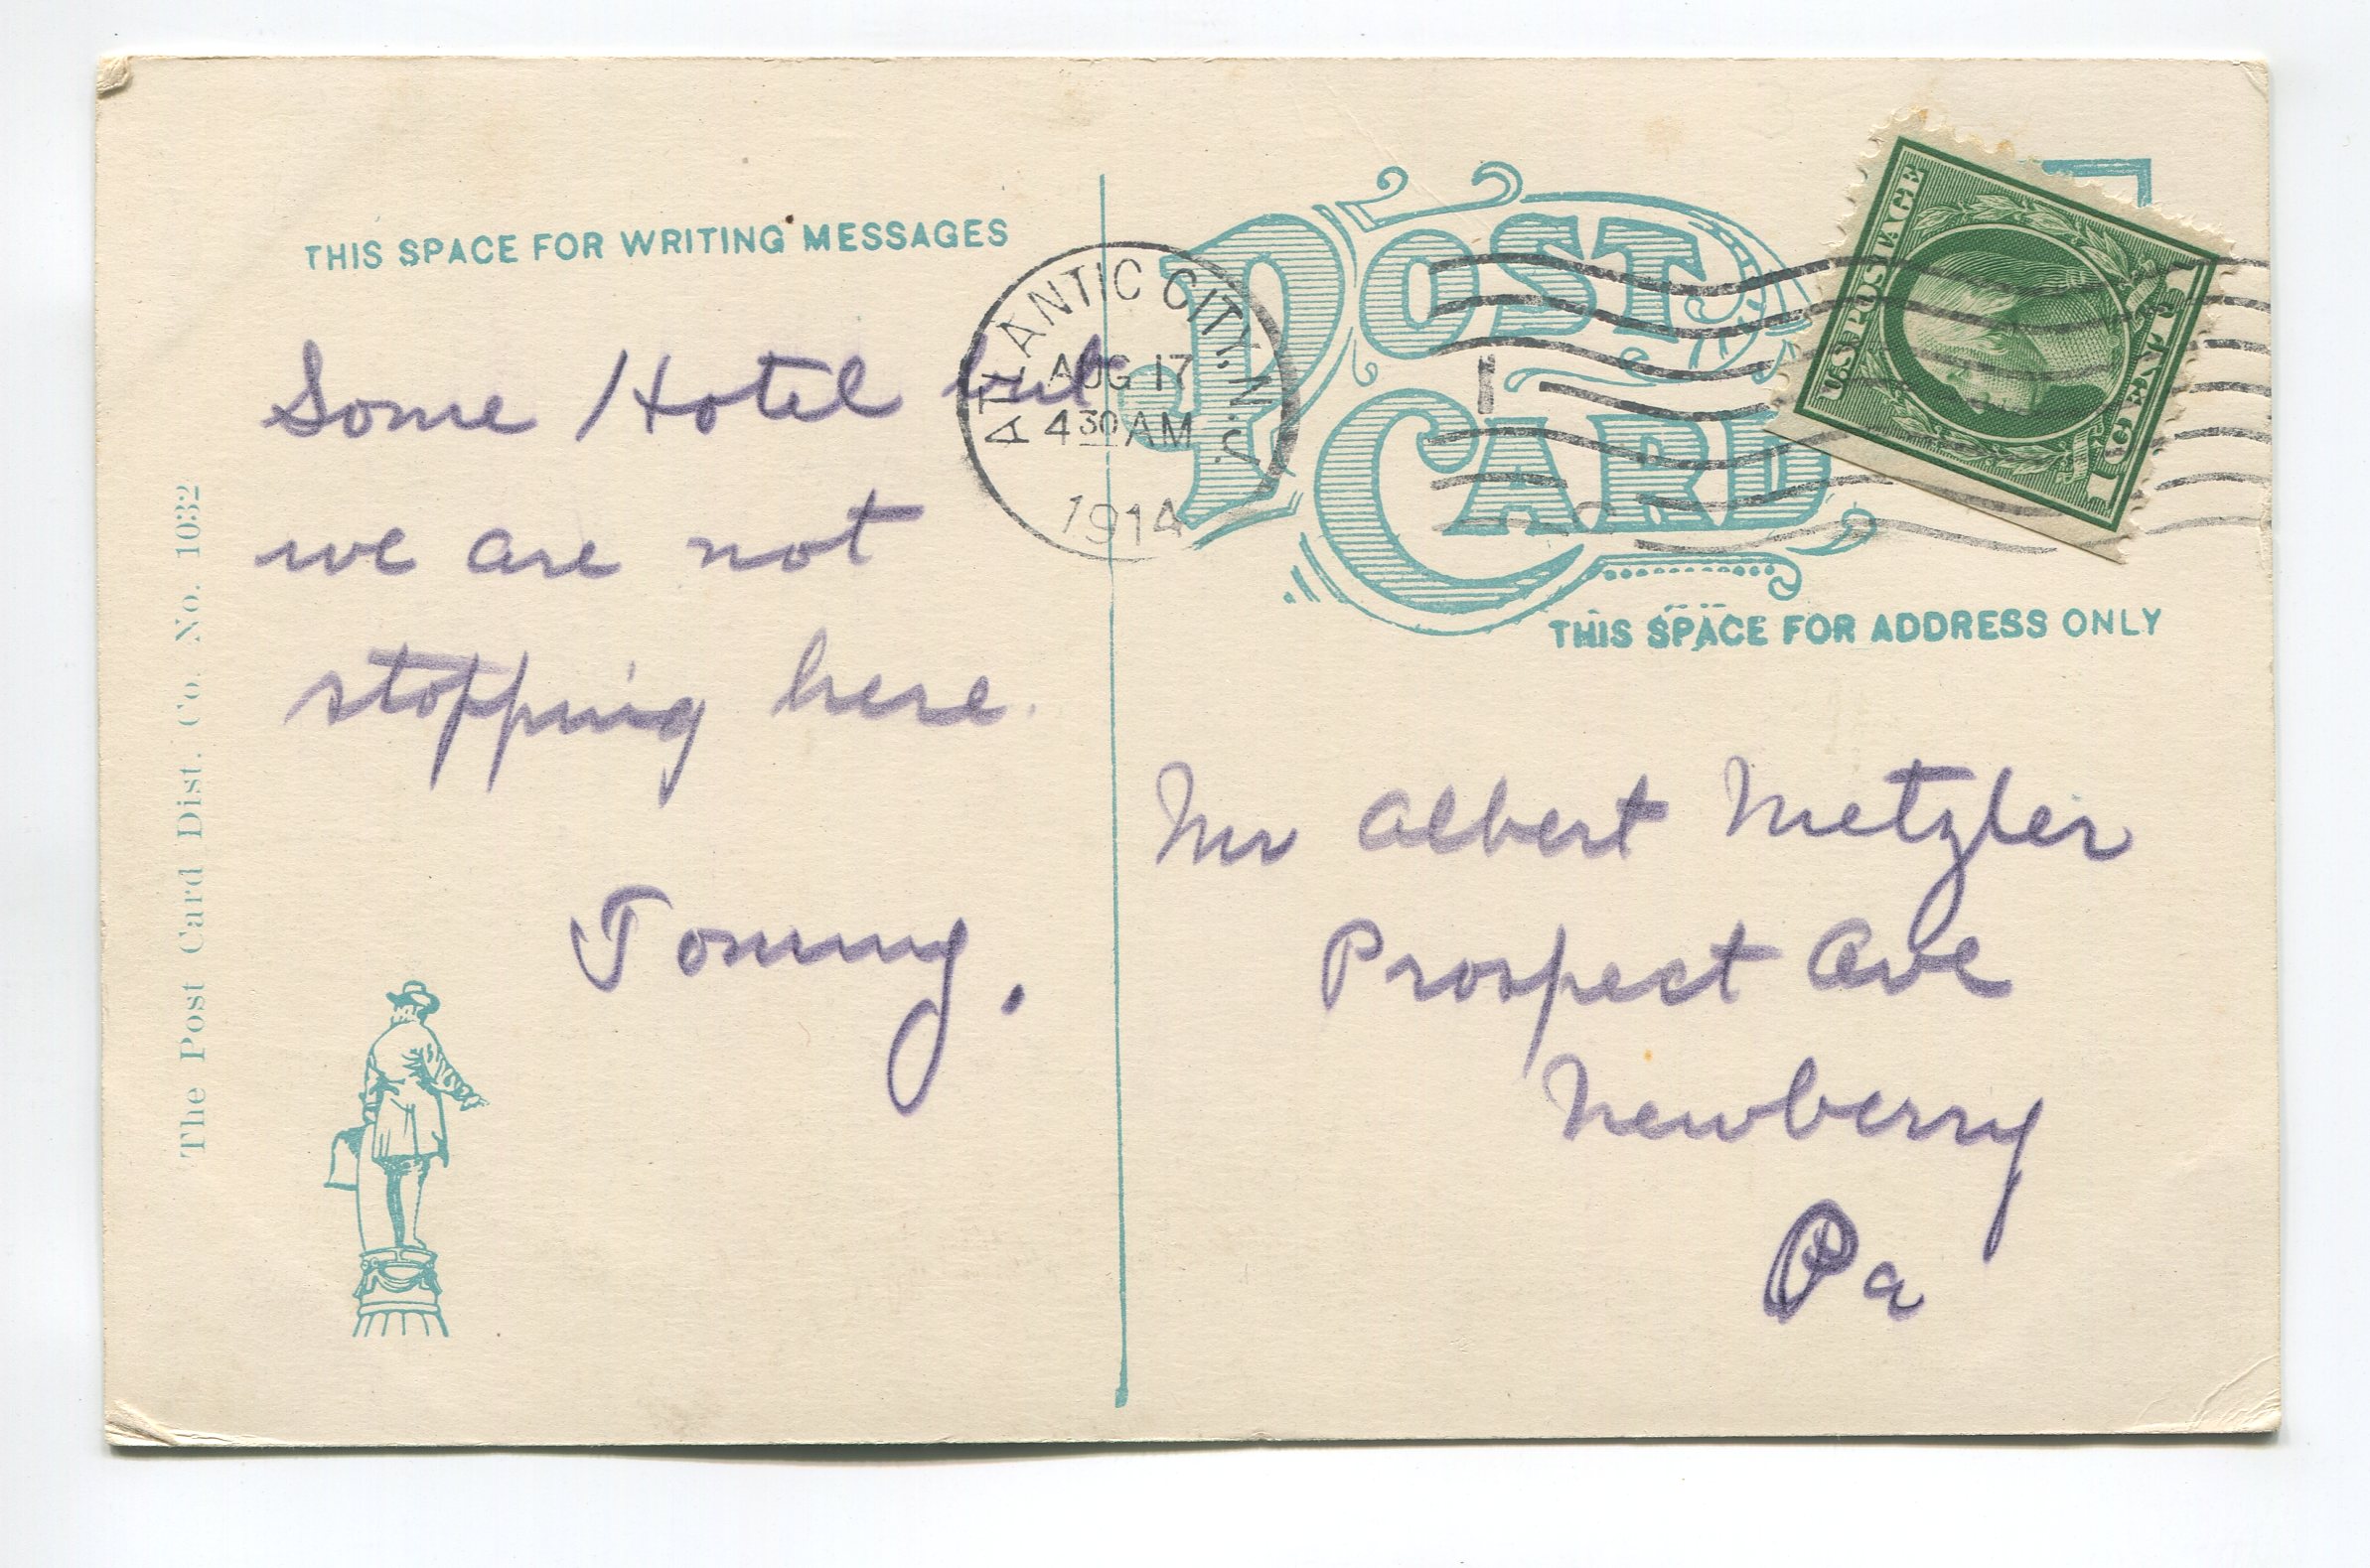 THIS SPACE FOR WRITING MESSAGES
Some Hotel but
we are not
stopping here.
Tommy.
The Post Card Dist. Co. No. 1032
ATLANTIC CITY, N.J.
AUG 17
4 30 AM
1914
POST
CARD
U.S. POSTAGE
1 CENT 1
THIS SPACE FOR ADDRESS ONLY
Mr Albert Metzler
Prospect Ave
Newberry
Pa